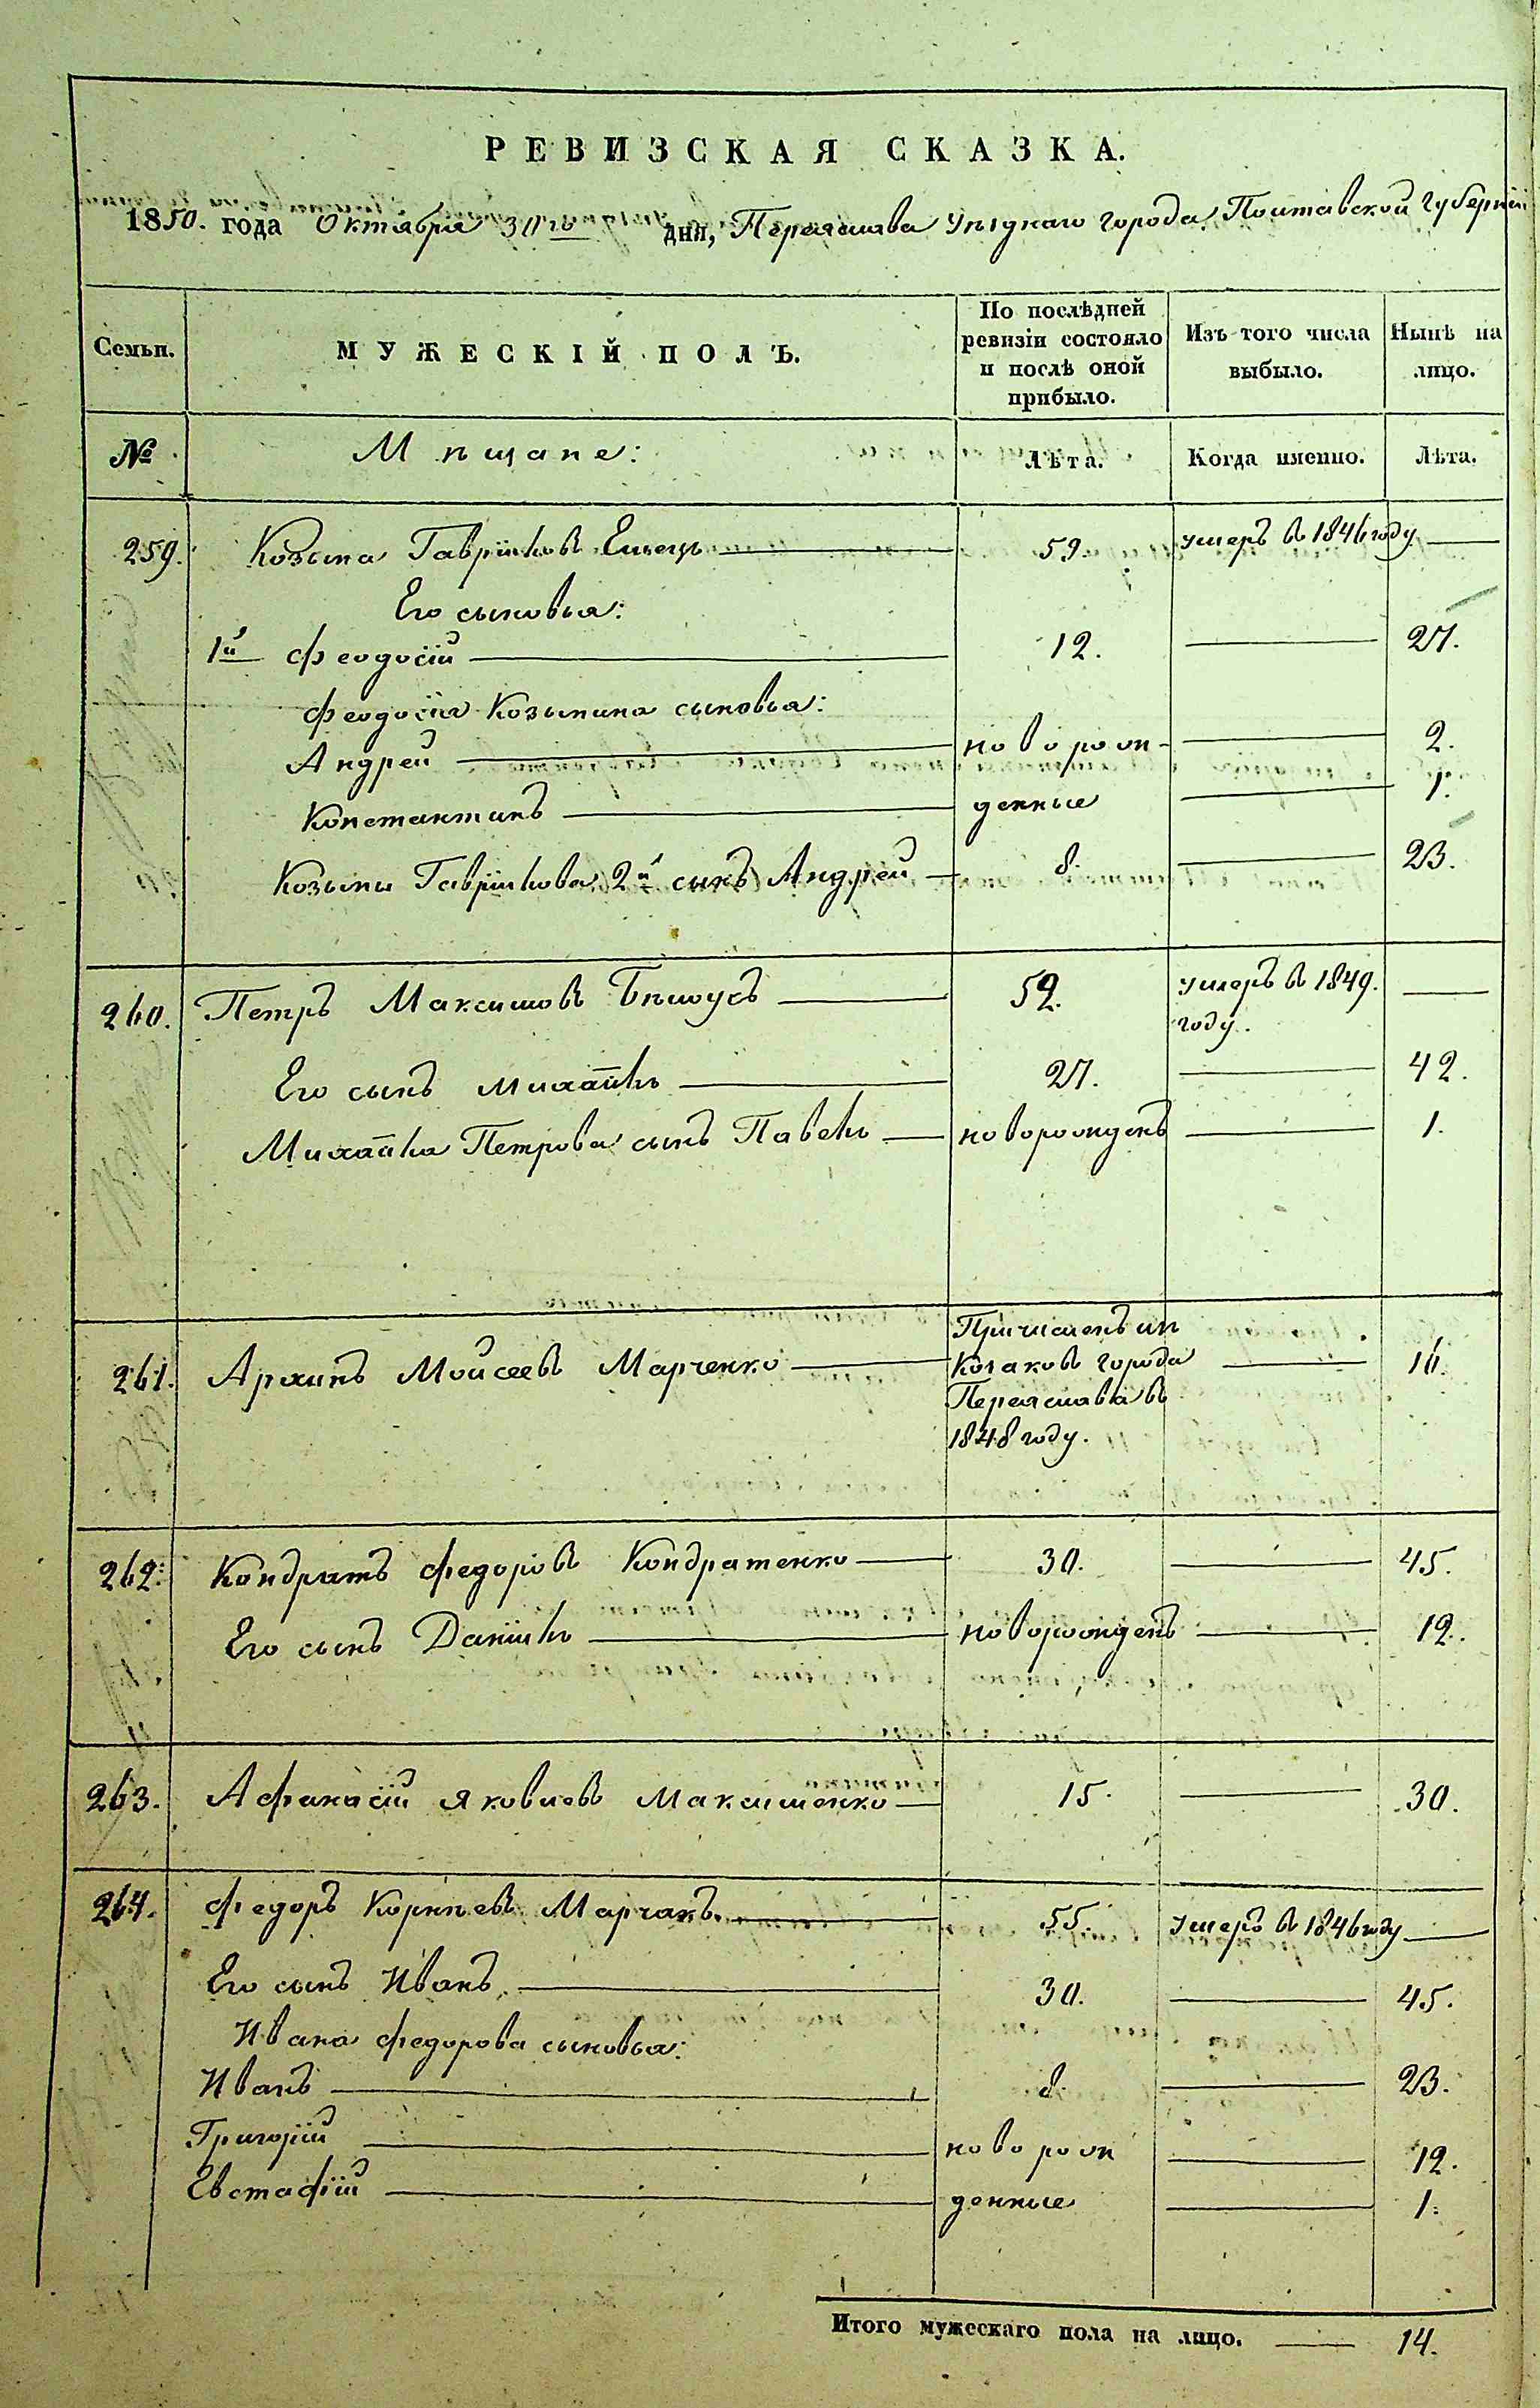 РЕВИЗСКАЯ СКАЗКА.
1850. года Октября 30го дня, Переяслава Уѣзднаго города Полтавской Губерніи
Семьи. МУЖЕСКІЙ ПОЛЪ. По послѣдней ревизіи состояло и послѣ оной прибыло. Изъ того числа выбыло. Нынѣ на лицо.
№ Мѣщане: Лѣта. Когда именно. Лѣта.
259. Козьма Гавріиловъ 59. умеръ въ 1846 году
Его сыновья:
1й Феодосій 12. 27.
Феодосія Козьмина сыновья:
Андрей новорож- 2.
Константинъ денные 1.
Козьмы Гавріилова 2й сынъ Андрей 8. 23.
260. Петръ Максимовъ Бѣлоусъ 52. умеръ въ 1849. году.
Его сынъ Михаилъ 27. 42.
Михаила Петрова сынъ Павелъ новорожденъ 1.
261. Архипъ Моисеевъ Марченко Причисленъ изъ 16.
Козаковъ города
Переяслава въ
1848 году.
262. Кондратъ Федоровъ Кондратенко 30. 45.
Его сынъ Даніилъ новорожденъ 12.
263. Афанасій Яковлевъ Максименко 15. 30.
264. Федоръ Корнѣевъ Марчакъ 55. Умеръ въ 1846 году
Его сынъ Иванъ 30. 45.
Ивана Федорова сыновья:
Иванъ 8. 23.
Григорій новорож 12.
Евстафій денные 1.
Итого мужескаго пола на лицо. 14.